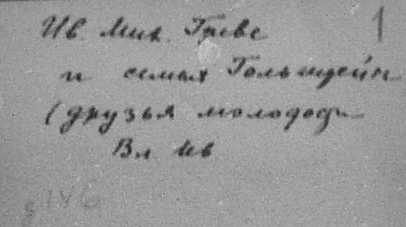 1
Ив. Мих. Гревс
и семья Гольштейн
(друзья молодости
Вл Ив